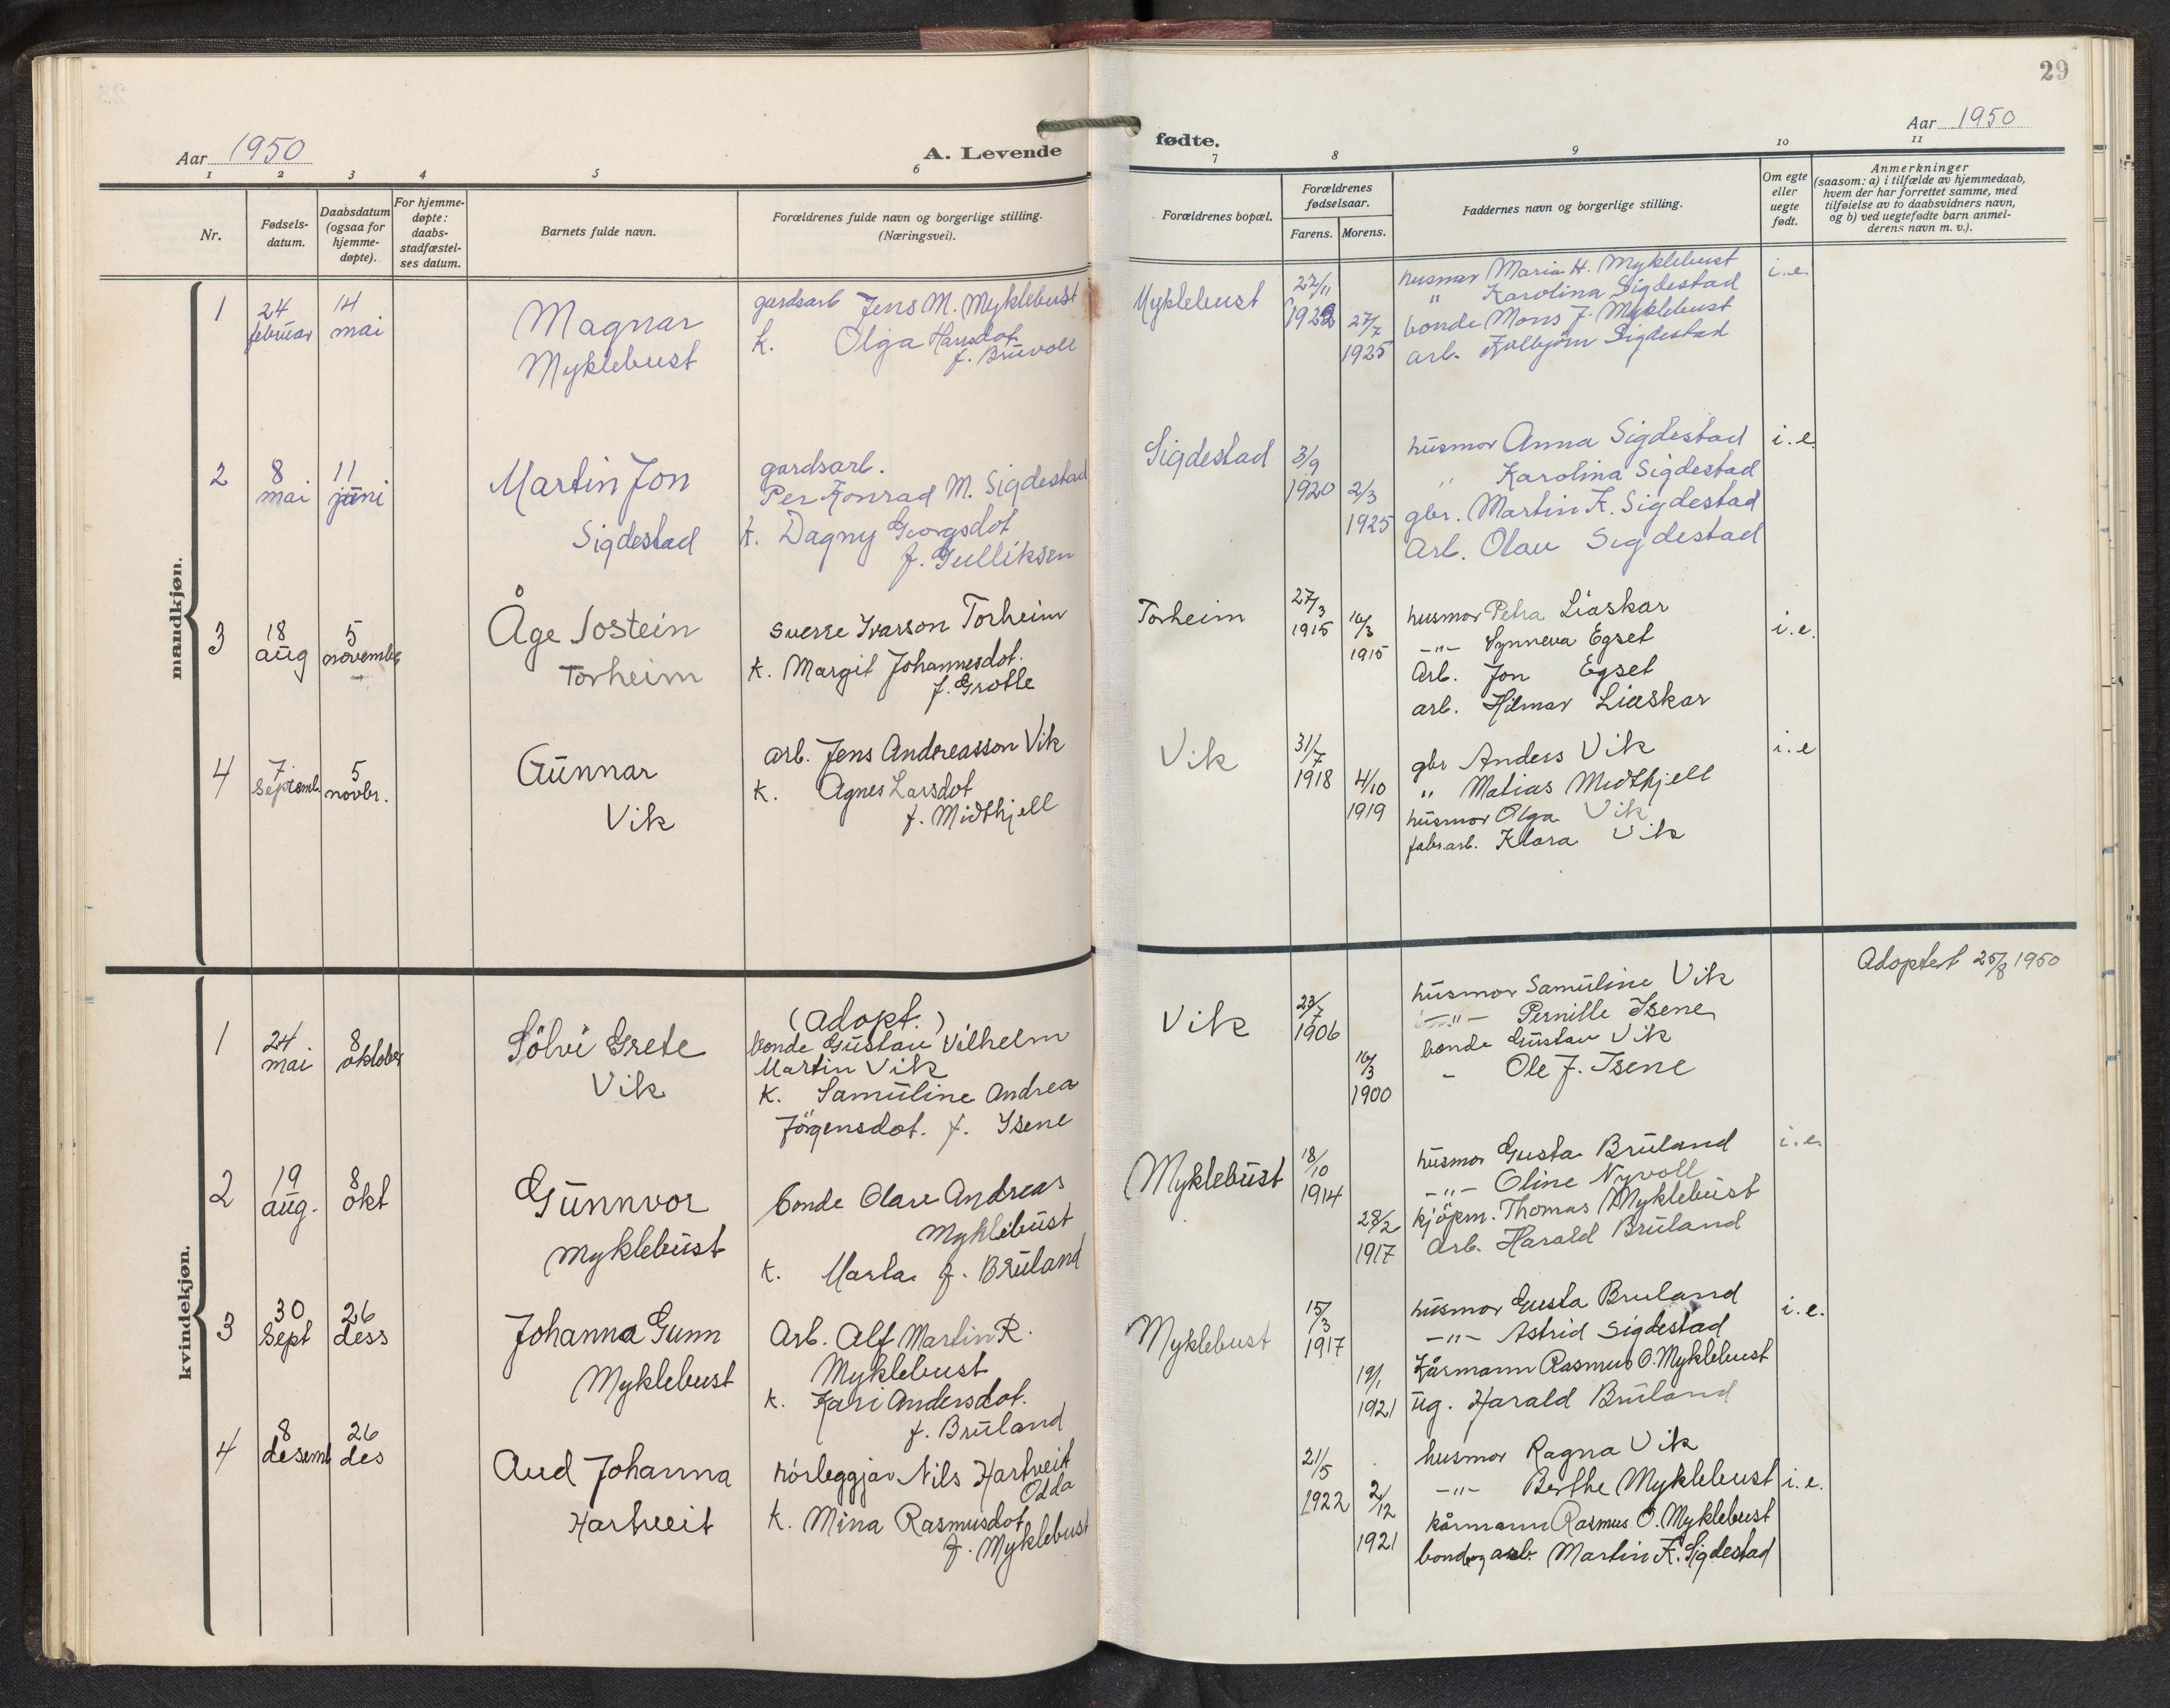 29
Aar 1950
A. Levende
fødte.
Aar 1950
1 2 3 4 5 6 7 8 9 10 11
Nr.
Fødsels-
datum.
Daabsdatum
(ogsaa for
hjemme-
døpte).
For hjemme-
døpte:
daabs-
stadfæstel-
ses datum.
Barnets fulde navn.
Forældrenes fulde navn og borgerlige stilling.
(Næringsvei).
Forældrenes bopæl.
Forældrenes
fødselsaar.
Farens. Morens.
Faddernes navn og borgerlige stilling.
Om egte
eller
uegte
født.
Anmerkninger
(saasom: a) i tilfælde av hjemmedaab,
hvem der har forrettet samme, med
tilføielse av to daabsvidners navn,
og b) ved uegtefødte barn anmel-
derens navn m. v.).
mandkjøn.
1
24
februar
14
mai
Magnar
Myklebust
gardsarb Jens M. Myklebust
k. Olga Hansdot.
f. Bruvoll
Myklebust
22/11
1922
27/7
1925
husmor Maria H. Myklebust
" Karolina Sigdestad
bonde Mons J. Myklebust
arb. Kolbjørn Sigdestad
i.e.
2
8
mai
11
juni
Martin Jon
Sigdestad
gardsarb.
Per Konrad M. Sigdestad
k. Dagny Georgsdot
f. Gulliksen
Sigdestad
3/9
1920
2/3
1925
husmor Anna Sigdestad
" Karolina Sigdestad
gbr. Martin K. Sigdestad
Arb. Olav Sigdestad
i.e.
3
18
aug
5
november
Åge Jostein
Torheim
Sverre Ivarson Torheim
k. Margit Johannesdot.
f. Grotle
Torheim
27/3
1915
16/3
1915
husmor Petra Liaskar
-"- Synneva Egset
Arb. Jon Egset
arb. Hilmar Liaskar
i.e.
4
7
Septemb.
5
novbr.
Gunnar
Vik
arb. Jens Andreasson Vik
k. Agnes Larsdot
f. Midthjell
Vik
31/7
1918
4/10
1919
gbr Anders Vik
" Matias Midthjell
husmor Olga Vik
fabr.arb. Klara Vik
i.e
kvindekjøn.
1
24
mai
8
oktober
Sölvi Grete
Vik
(Adopt.)
bonde Gustav Vilhelm
Martin Vik
k. Samuline Andrea
Jörgensdot. f. Isene
Vik
23/7
1906
16/3
1900
husmor Samuline Vik
-"- Pernille Isene
bonde Gustav Vik
- Ole J. Isene
Adoptert 25/8 1950
2
19
aug.
8
okt
Gunnvor
Myklebust
bonde Olav Andreas
Myklebust
k. Marta f. Bruland
Myklebust
18/10
1914
28/2
1917
husmor Gusta Bruland
-"- Oline Nyvoll
kjöpm. Thomas Myklebust
Arb. Harald Bruland
i.e.
3
30
Sept
26
dess
Johanna Gunn
Myklebust
Arb. Alf Martin R.
Myklebust
k. Kari Andersdot.
f. Bruland
Myklebust
15/3
1917
19/1
1921
husmor Gusta Bruland
-"- Astrid Sigdestad
Kårmann Rasmus O. Myklebust
ug. Harald Bruland
i.e.
4
8
desemb
26
des
Aud Johanna
Hartveit
rörleggjar Nils Hartveit
Odda
k. Mina Rasmusdot
f. Myklebust
21/5
1922
2/12
1921
husmor Ragna Vik
-"- Berthe Myklebust
kårmann Rasmus O. Myklebust
bond og arb. Martin K. Sigdestad
i.e.